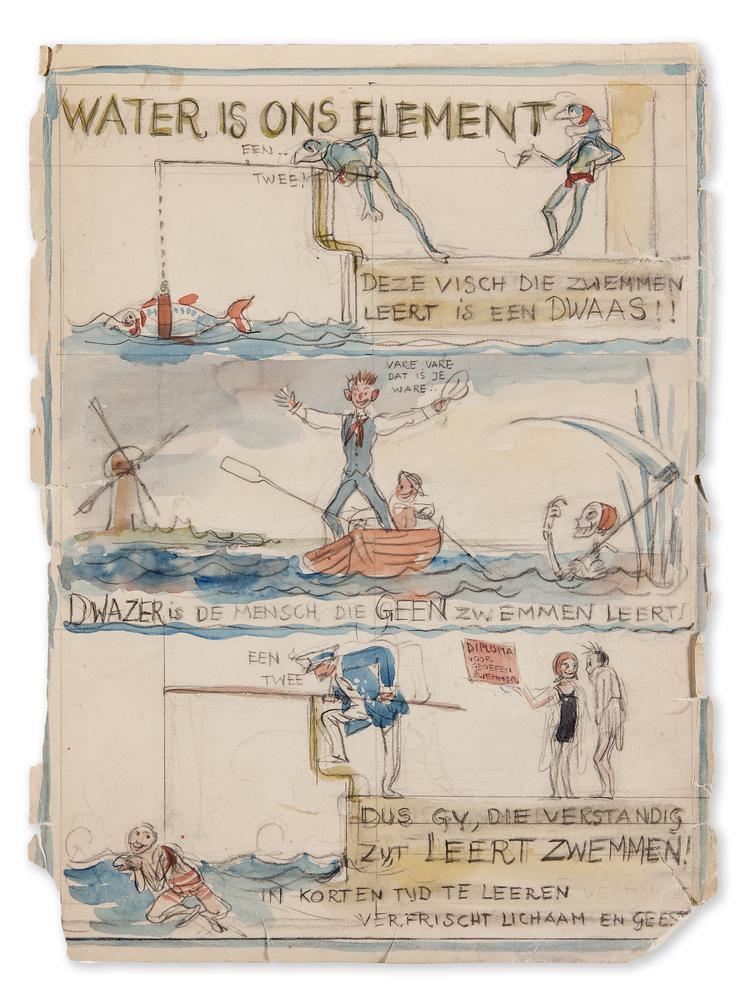 WATER IS ONS ELEMENT
EEN..
TWEE!
DEZE VISCH DIE ZWEMMEN
LEERT IS EEN DWAAS!!
VARE, VARE
DAT IS JE
WARE..
DWAZER is DE MENSCH, DIE GEEN ZWEMMEN LEERT!
EEN
TWEE
DIPLOMA
VOOR
GEOEFEN
ZWEMMER
DUS GY, DIE VERSTANDIG
ZYT LEERT ZWEMMEN!
IN KORTEN TYD TE LEEREN
VERFRISCHT LICHAAM EN GEEST